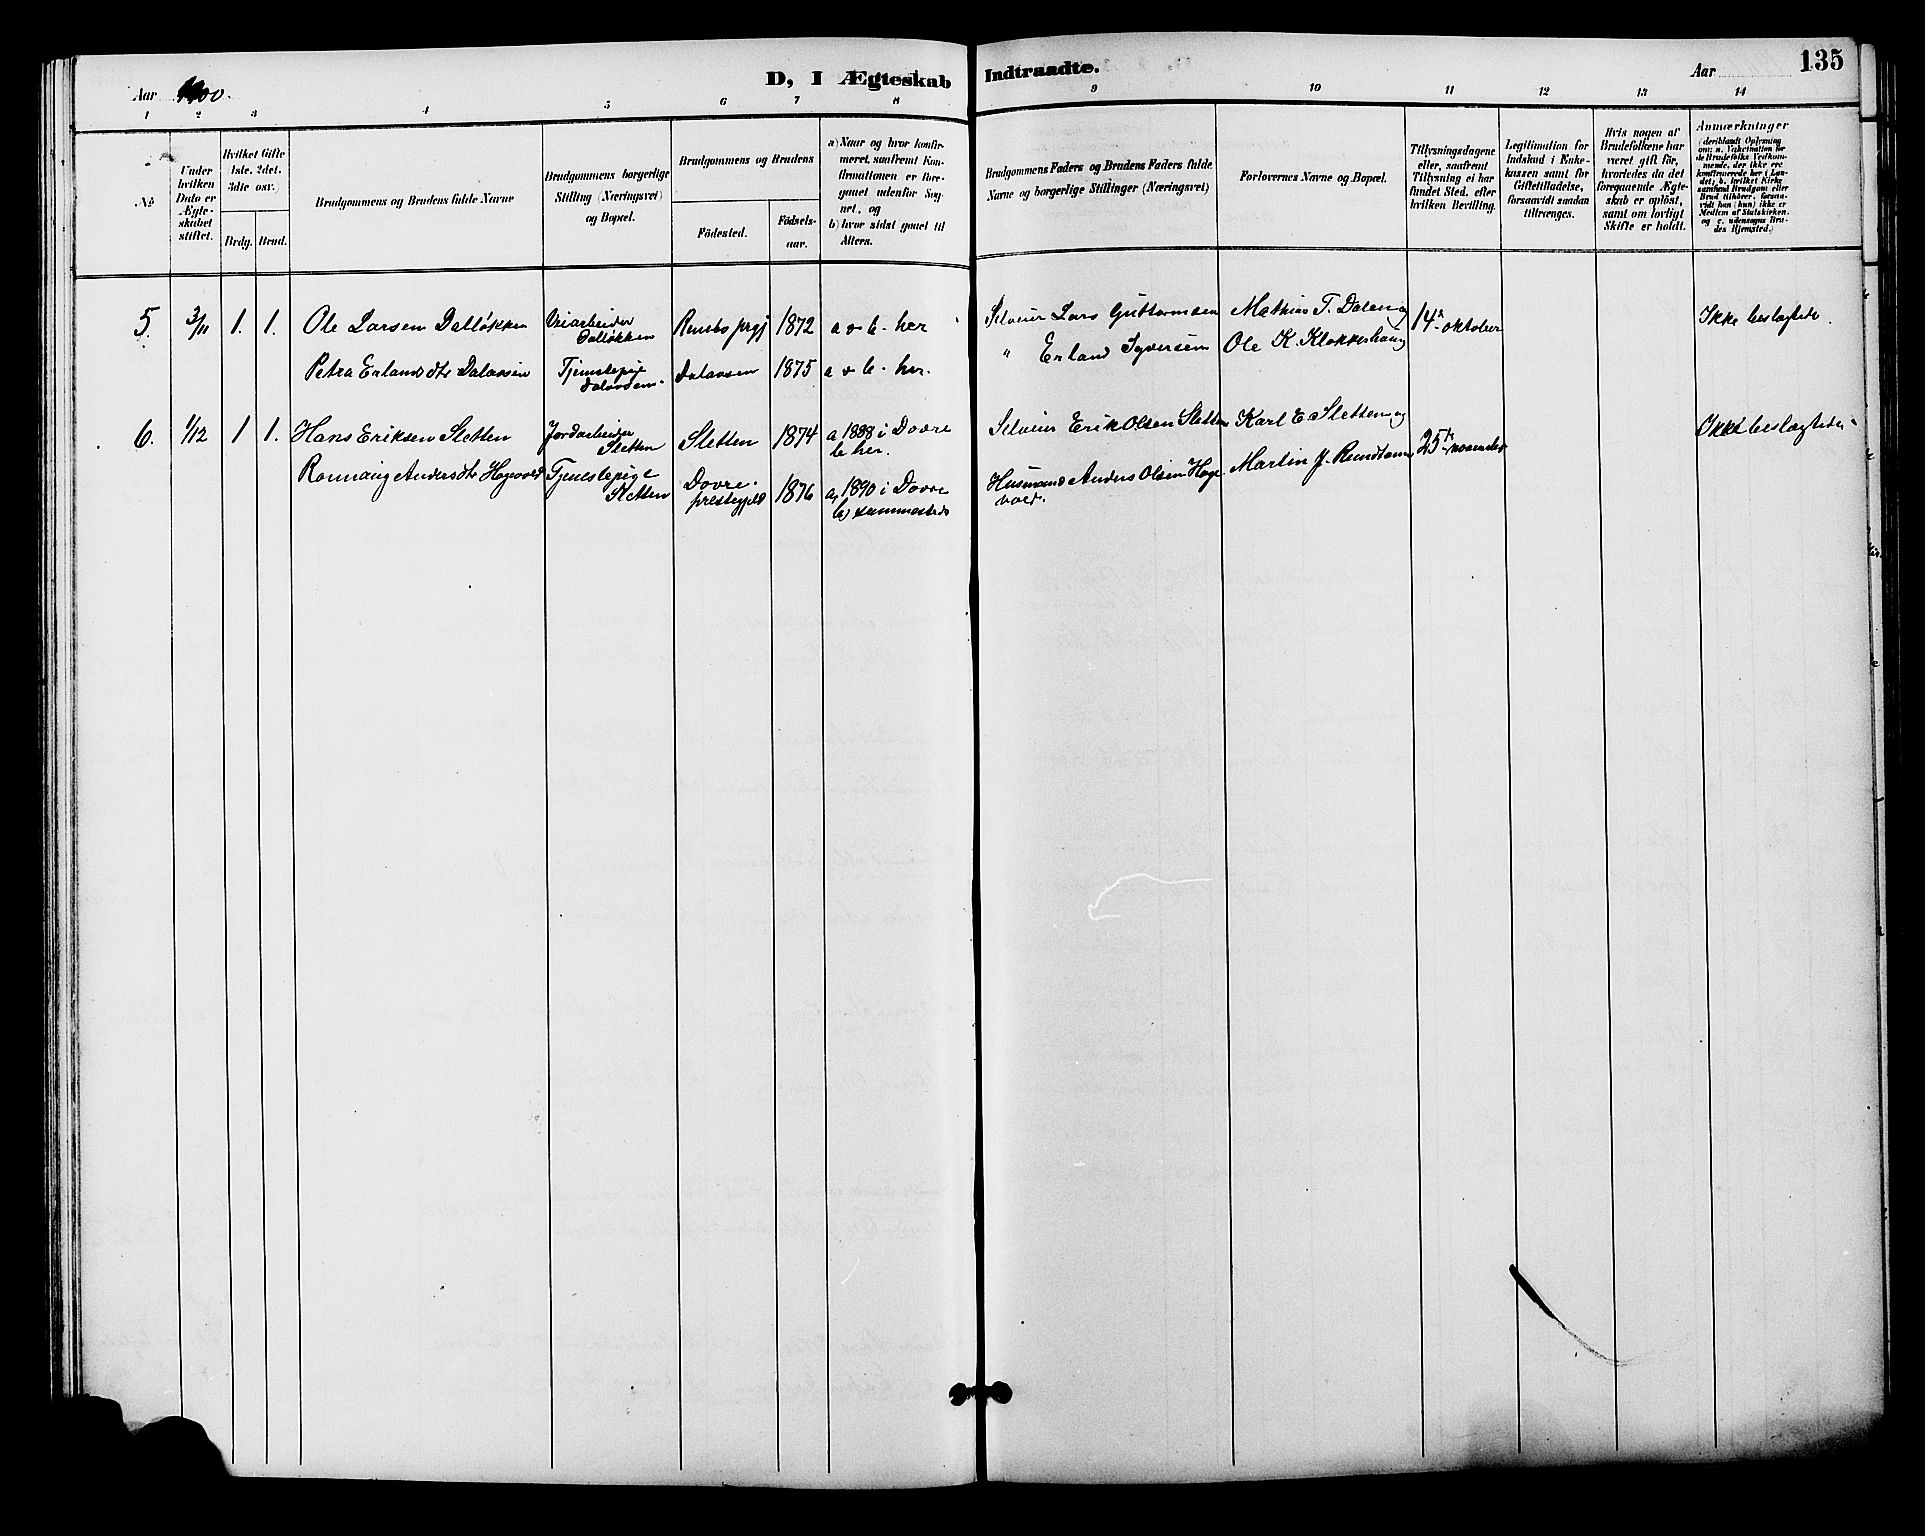 Aar 1900.
D, I Ægteskab Indtraadte.
Aar
135
1 2 3 4 5 6 7 8 9 10 11 12 13 14
No
Under hvilken Dato er Ægteskabet stiftet.
Hvilket Gifte 1ste. 2det. 3die osv.
Brdg. Brud.
Brudgommens og Brudens fulde Navne
Brudgommens borgerlige Stilling (Næringsvei) og Bopæl.
Brudgommens og Brudens
Födested.
Födselsaar.
a) Naar og hvor konfirmeret, saafremt Konfirmationen er foregaaet udenfor Sognet, og
b) hvor sidst gaaet til Alters.
Brudgommens Faders og Brudens Faders fulde Navne og borgerlige Stillinger (Næringsvei)
Forlovernes Navne og Bopæl.
Tillysningsdagene eller, saafremt Tillysning ei har fundet Sted, efter hvilken Bevilling.
Legitimation for Indskud i Enkekassen samt for Giftetilladelse, forsaavidt saadan tiltrænges.
Hvis nogen af Brudefolkene har været gift för, hvorledes da det foregaaende Ægteskab er oplöst, samt om lovligt Skifte er holdt.
Anmærkninger
(deriblandt Oplysning om: a. Vaksination for de Brudefolks Vedkommende, der ikke ere konfirmerede her i Landet; b. hvilket Kirkesamfund Brudgom eller Brud tilhörer, forsaavidt han (hun) ikke er Medlem af Statskirken, og c. udensogns Brudes Hjemsted.)
5. 3/11 1. 1. Ole Larsen Dalløkken
Veiarbeider Dalløkken
1872 a o b. her
Selveier Lars Guttormsen
Mathias T. Dalen og
14de oktober
Ikke beslægtede.
Petra Erlandsdtr Dalaasen
Tjenestepige Dalaasen.
Dalaasen 1875 a o b. her.
" Erland Syversen
Ole K. Klokkerhaug
6. 1/12 1 1. Hans Eriksen Sletten
Jordarbeider Sletten
Sletten 1874 a 1888 i Dovre
b her.
Selveier Erik Olsen Sletten
Karl E. Sletten og
25de november
Ikke beslægtede.
Tjenestepige Sletten
Dovre prestegjeld 1876 a, 1890 i Dovre
b) sammesteds
Husmand Anders Olsen Hagevold.
Martin J.